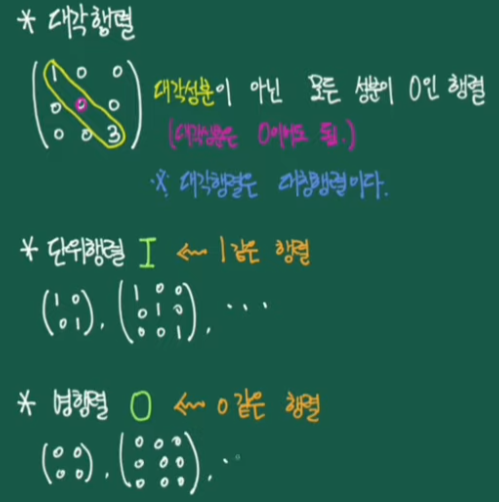 * 대각행렬
1 0 0
0 0 0
0 0 3
대각성분이 아닌 모든 성분이 0인 행렬
(대각성분은 0이어도 됨.)
※ 대각행렬은 대칭행렬이다.
* 단위행렬 I ← 1 같은 행렬
(1 0
0 1), (1 0 0
0 1 0
0 0 1), ...
* 영행렬 O ← 0 같은 행렬
(0 0
0 0), (0 0 0
0 0 0
0 0 0), ..